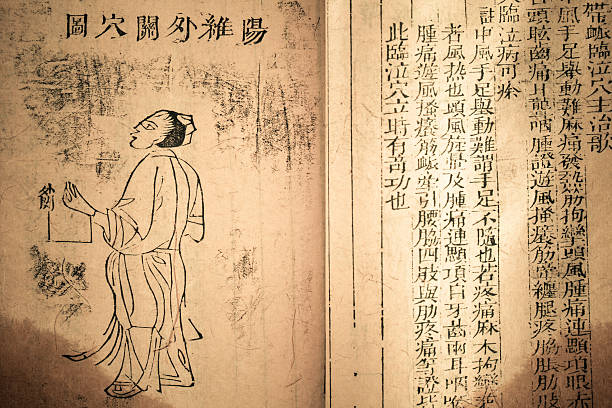 帶䘑臨泣穴主治歌
中風手足舉動難麻痛發熱筋拘攣頭風腫痛連顋項眼赤
頭眩齒痛耳聾咽腫證遊風搔癢筋牽纏腰疼脇脹肋肢
臨泣病可痊
註中風手足舉動難謂手足不隨也若疼痛麻木拘攣
者風熱也頭風旋暈及腫痛連顋項目牙齒兩耳咽喉
腫痛遊風搔癢筋䘑牽引腰脇四肢與肋疼痛等證
此臨泣穴立時有奇功也
陽維外關穴圖